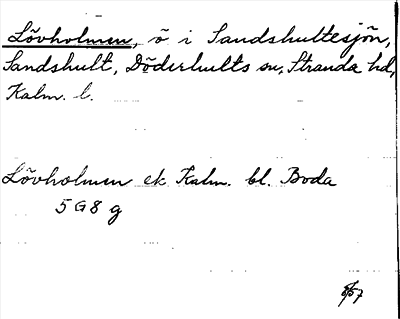 Lövholmen, ö i Sandshultesjön,
Sandshult, Döderhults sn, Stranda hd,
Kalm. l.
Lövholmen ek Kalm. bl. Boda
5 G 8 g